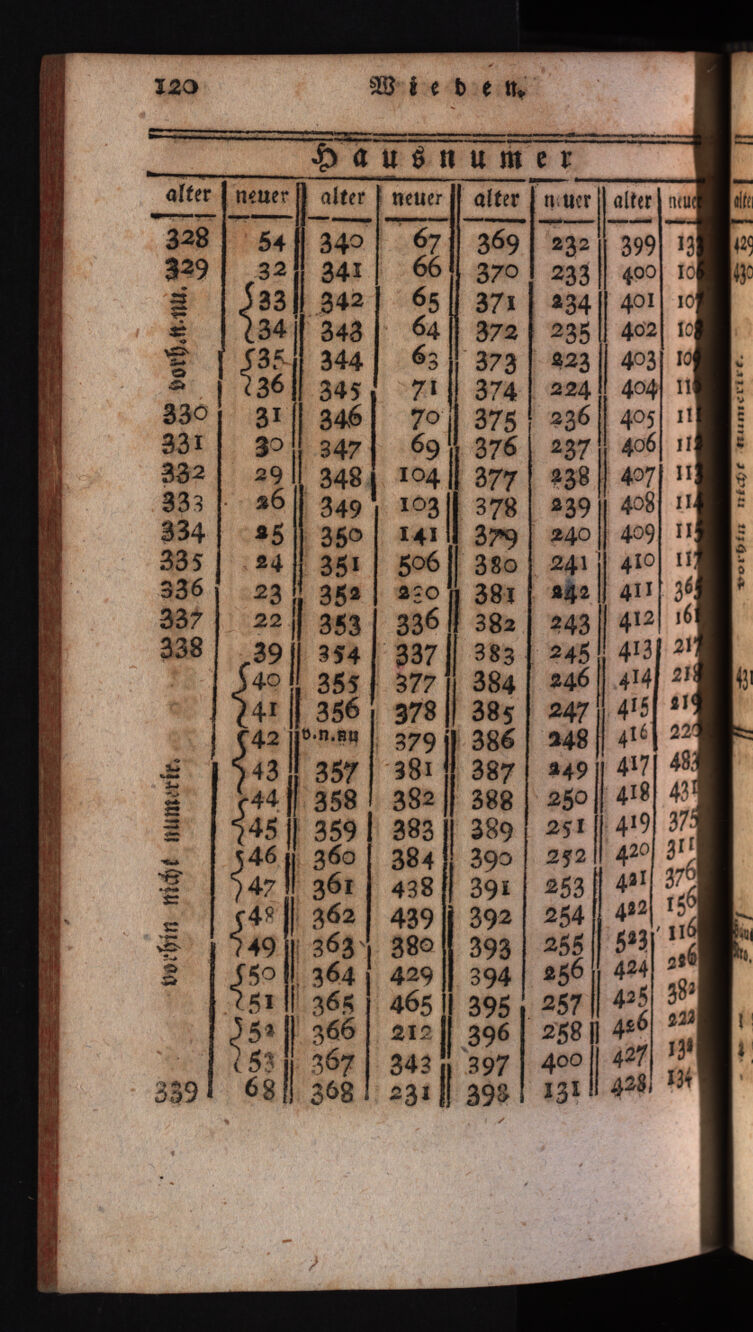 120 Wieden.
Hausnumer
alter neuer alter neuer alter neuer alter
328 54 340 67 369 232 399
329 32 341 66 370 233 400
33 342 65 371 234 401
34 343 64 372 235 402
35 344 63 373 223 403
36 345 71 374 224 404
330 31 346 70 375 236 405
331 30 347 69 376 237 406
332 29 348 104 377 238 407
333 26 349 103 378 239 408
334 25 350 141 379 240 409
335 24 351 506 380 241 410
336 23 352 230 381 242 411
337 22 353 336 382 243 412
338 39 354 337 383 245 413
40 355 377 384 246 414
41 356 378 385 247 415
42 v.n.nu 379 386 248 416
43 357 381 387 249 417
44 358 382 388 250 418
45 359 383 389 251 419
46 360 384 390 252 420
47 361 438 391 253 421
48 362 439 392 254 422
49 363 380 393 255 523
50 364 429 394 256 424
51 365 465 395 257 425
52 366 212 396 258 426
53 367 343 397 400 427
339 68 368 231 398 131 428
vorh.n.nu.
vorhin nicht numerir.